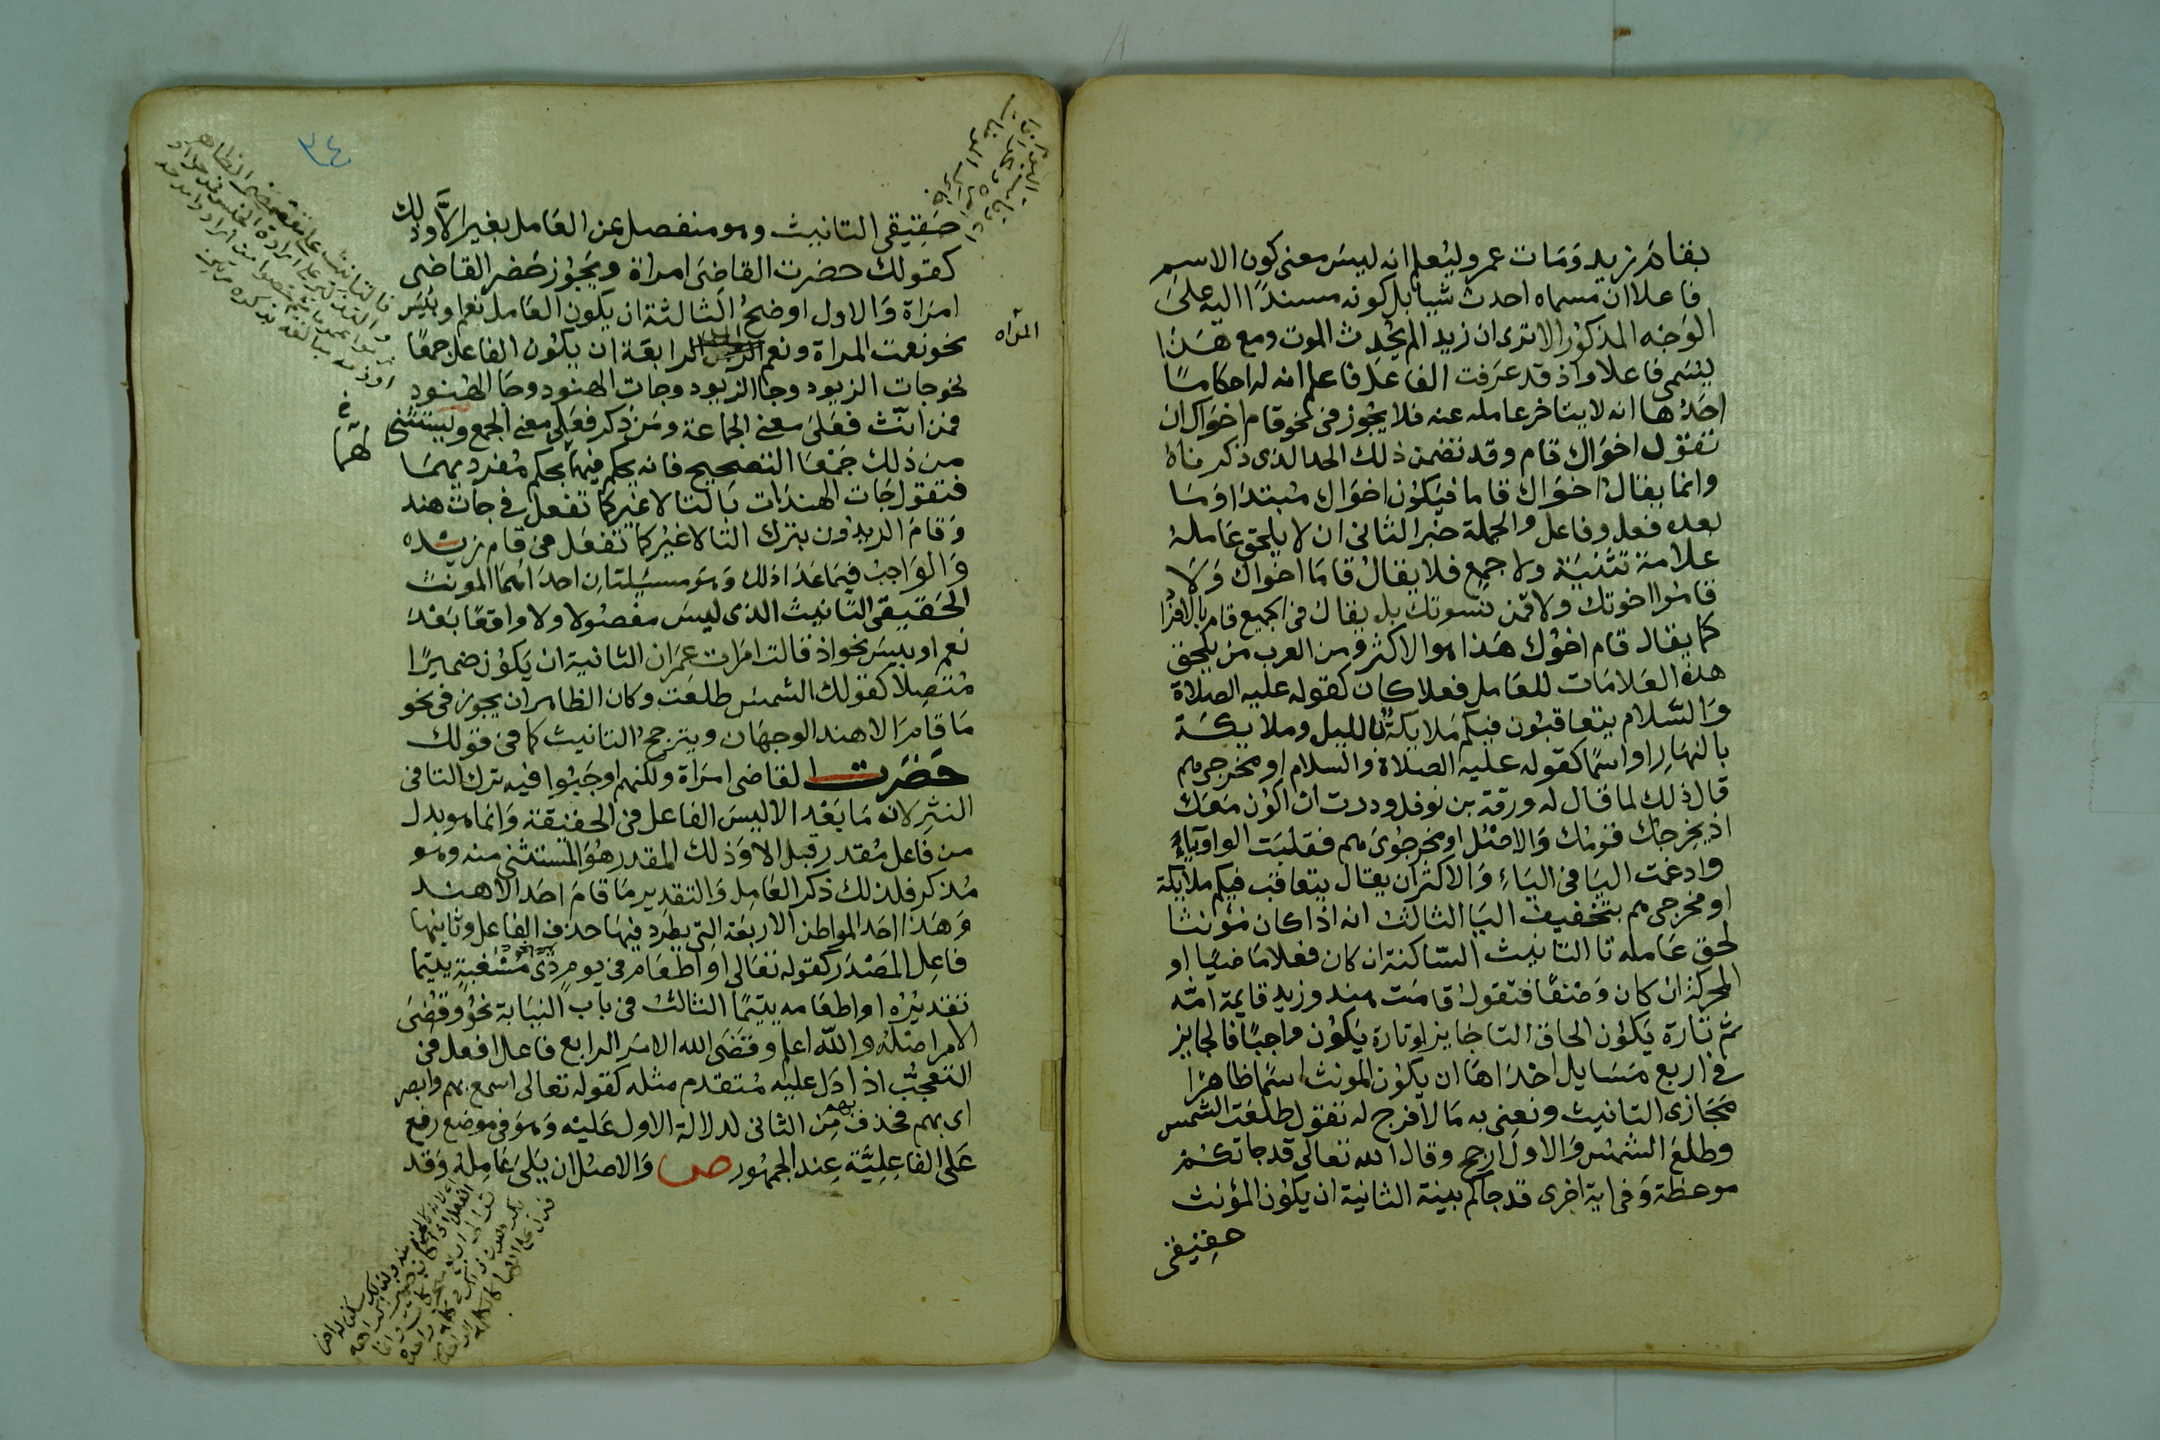 بقام زيد ومات عمر وليعلم انه ليس معنى كون الاسم
فاعلا ان مسماه احدث شيا بل كونه مسندا اليه على
الوجه المذكور الا ترى ان زيدا لم يحدث الموت ومع هذا
يسمى فاعلا واذ قد عرفت الفاعل فاعلم انه له احكاما
احدها انه لا يتاخر عامله عنه فلا يجوز فى نحو قام اخواك ان
تقول اخواك قام وقد تضمن ذلك الحد الذى ذكرناه
وانما يقال اخواك قاما فيكون اخواك مبتدا وما
بعده فعل وفاعل والجملة خبر الثانى ان لا يلحق عامله
علامة تثنية ولا جمع فلا يقال قاما اخواك ولا
قاموا اخوتك ولا قمن نسوتك بل يقال فى الجميع قام بالافراد
كما يقال قام اخوك هذا هو الاكثر ومن العرب من يلحق
هذه العلامات للعامل فعلا كان كقوله عليه الصلاة
والسلام يتعاقبون فيكم ملايكة بالليل وملايكة
بالنهار او اسما كقوله عليه الصلاة والسلام او مخرجى هم
قال ذلك لما قال له ورقة بن نوفل وددت ان اكون معك
اذ يخرجك قومك والاصل او مخرجوى هم فقلبت الواو ياء
وادغمت اليا فى الياء والاكثر ان يقال يتعاقب فيكم ملايكة
او مخرجى هم بتخفيف اليا الثالث انه اذا كان مونثا
لحق عامله تا التانيث الساكنة ان كان فعلا ماضيا او
المحركة ان كان وصفا فتقول قامت هند وزيد قايمة امه
ثم تارة يكون الحاق التا جايزا وتارة يكون واجبا فالجايز
فى اربع مسايل احداها ان يكون المونث اسما ظاهرا
مجازى التانيث ونعنى به ما لا فرج له تقول طلعت الشمس
وطلع الشمس والاول ارجح وقال الله تعالى قد جاتكم
موعظة وفى اية اخرى قد جاكم بينة الثانية ان يكون المؤنث
حقيقى
٣٤
حقيقى التانيث وهو منفصل عن العامل بغير الا وذلك
كقولك حضرت القاضى امراة ويجوز حضر القاضى
امراة والاول اوضح الثالثة ان يكون العامل نعم او بئس
نحو نعمت المراة ونعم المراة الرابعة ان يكون الفاعل جمعا
نحو جات الزيود وجا الزيود وجات الهنود وجا الهنود
فمن انث فعلى معنى الجماعة ومن ذكر فعلى معنى الجمع ويستثنى
من ذلك جمعا التصحيح فانه يحكم فيهما بحكم مفرديهما
فتقول جات الهندات بالتا لا غير كما تفعل فى جات هند
وقام الزيدون بترك التا لا غير كما تفعل فى قام زيد
والواجب فيما عدا ذلك وهو مسيلتان احداهما المونث
الحقيقى التانيث الذى ليس مفصولا ولا واقعا بعد
نعم او بيس نحو اذ قالت امرات عمران الثانية ان يكون ضميرا
متصلا كقولك الشمس طلعت وكان الظاهر ان يجوز فى نحو
ما قام الا هند الوجهان ويترجح التانيث كما فى قولك
حضرت القاضى امراة ولكنهم اوجبوا فيه ترك التا فى
النثر لانه ما بعد الا ليس الفاعل فى الحقيقة وانما هو بدل
من فاعل مقدر قبل الا وذلك المقدر هو المستثنى منه وهو
مذكر فلذلك ذكر العامل والتقدير ما قام احد الا هند
وهذا احد المواطن الاربعة التى يطرد فيها حذف الفاعل وثانيها
فاعل المصدر كقوله تعالى او اطعام فى يوم ذى مسغبة يتيما
تقديره او اطعامه يتيما الثالث فى باب النيابة نحو وقضى
الامر اصله والله اعلم وقضى الله الامر الرابع فاعل افعل فى
التعجب اذا دل عليه متقدم مثله كقوله تعالى اسمع بهم وابصر
اى بهم فحذف بهم من الثانى لدلالة الاول عليه وهو فى موضع رفع
على الفاعلية عند الجمهور ص والاصل ان يلى عامله وقد
المرآه